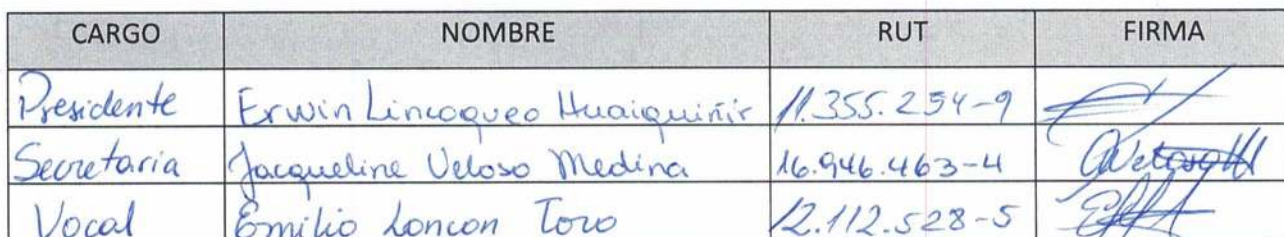 CARGO NOMBRE RUT FIRMA
Presidente Erwin Lincoqueo Huaiquiñir 11.355.254-9
Secretaria Jacqueline Veloso Medina 16.946.463-4
Vocal Emilio Loncon Toro 12.112.528-5